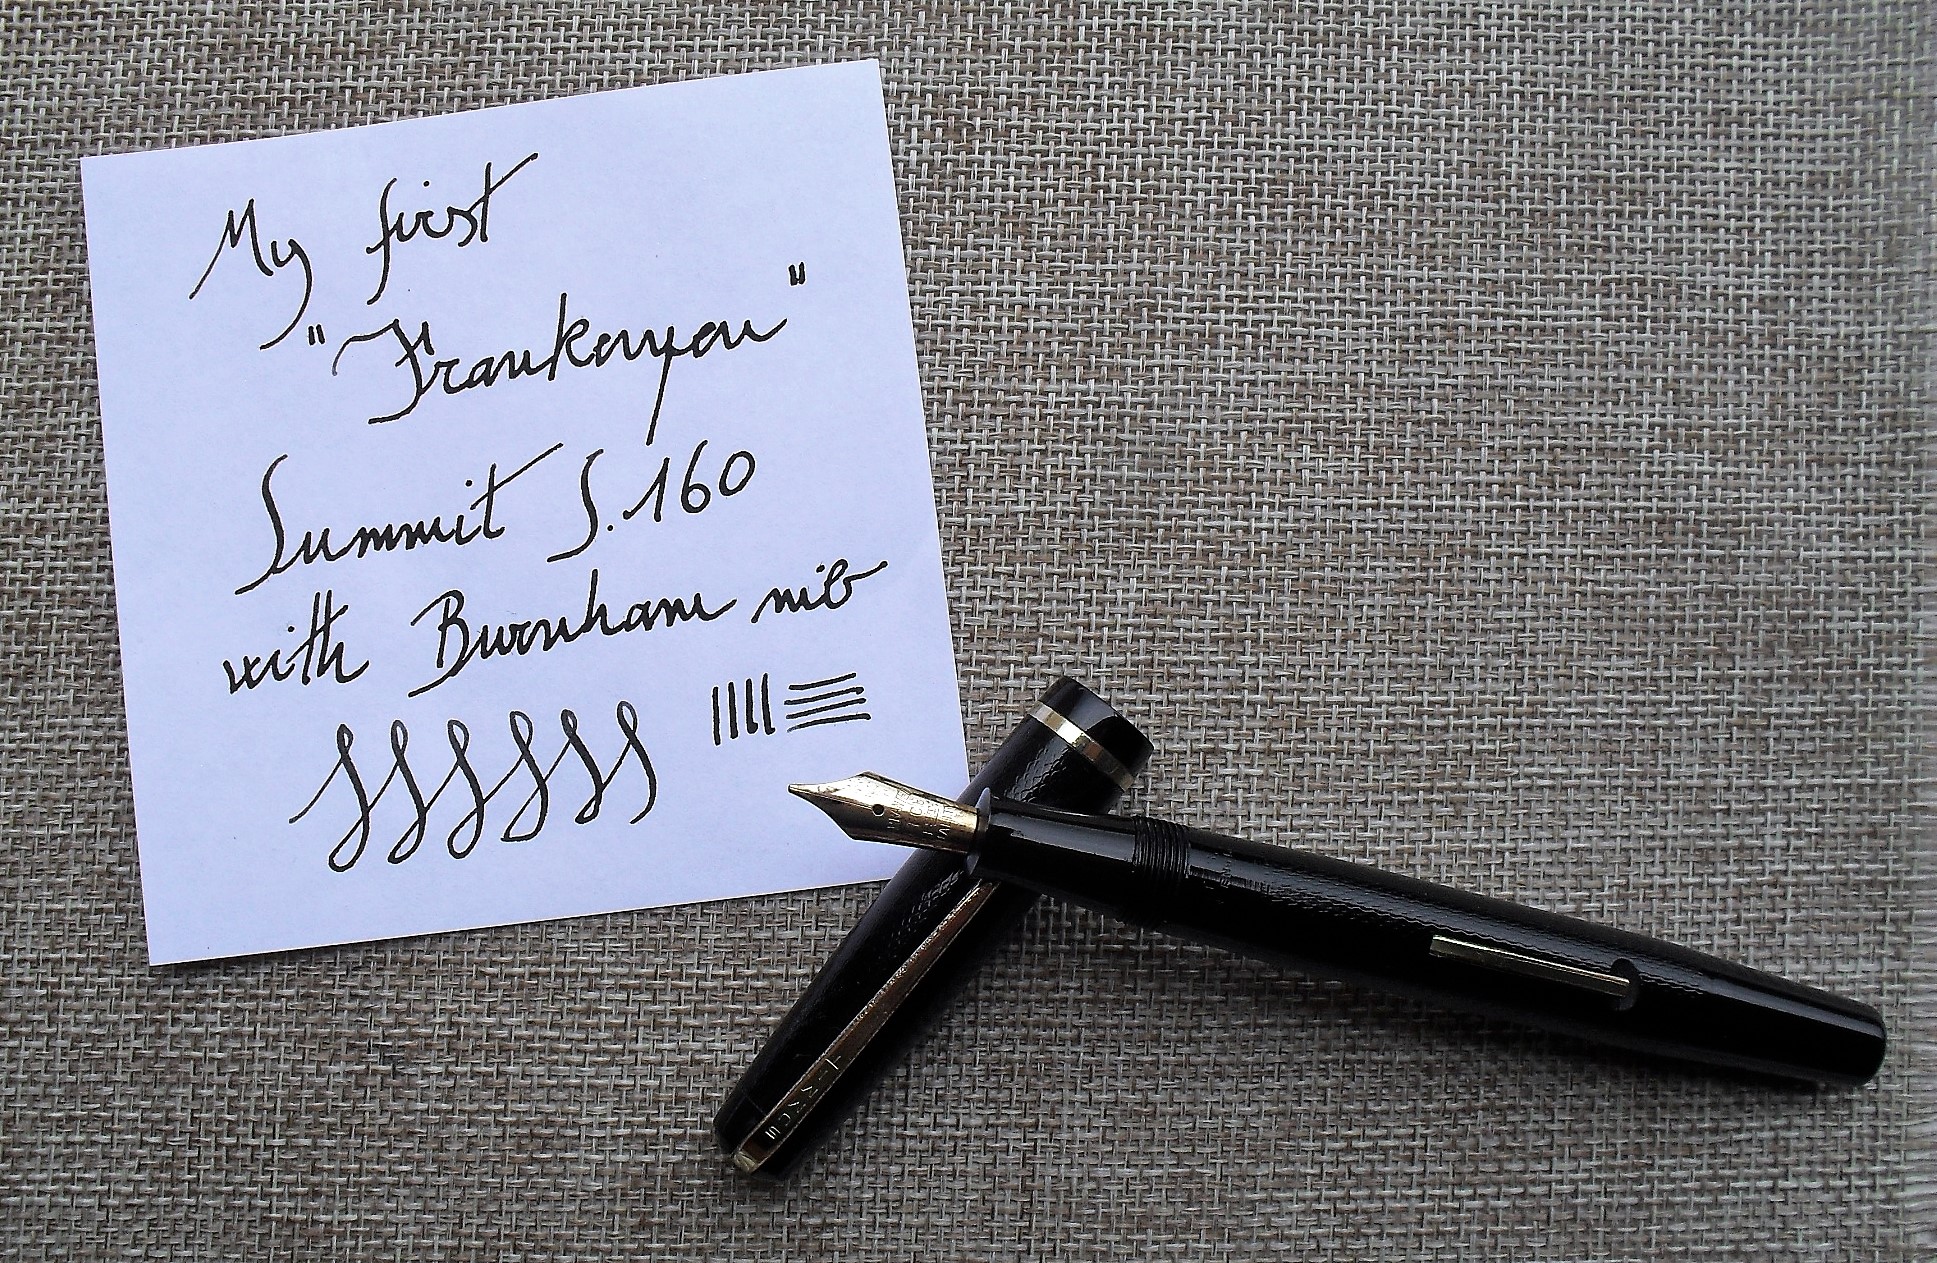 My first
"Frankenpen"
Summit S.160
with Burnham nib